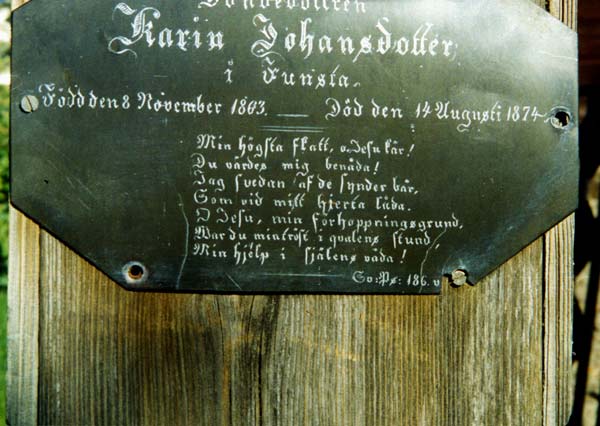 Bondedottren
Karin Johansdotter,
i Funsta.
Född den 8 November 1803. — Död den 14 Augusti 1874
Min högsta skatt, o Jesu kär!
Du värdes mig benåda!
Jag svedan af de synder bär,
Som vid mitt hjerta låda.
O Jesu, min förhoppningsgrund,
Var du min tröst i qvalens stund,
Min hjelp i själens våda!
Sv: Ps: 186. v